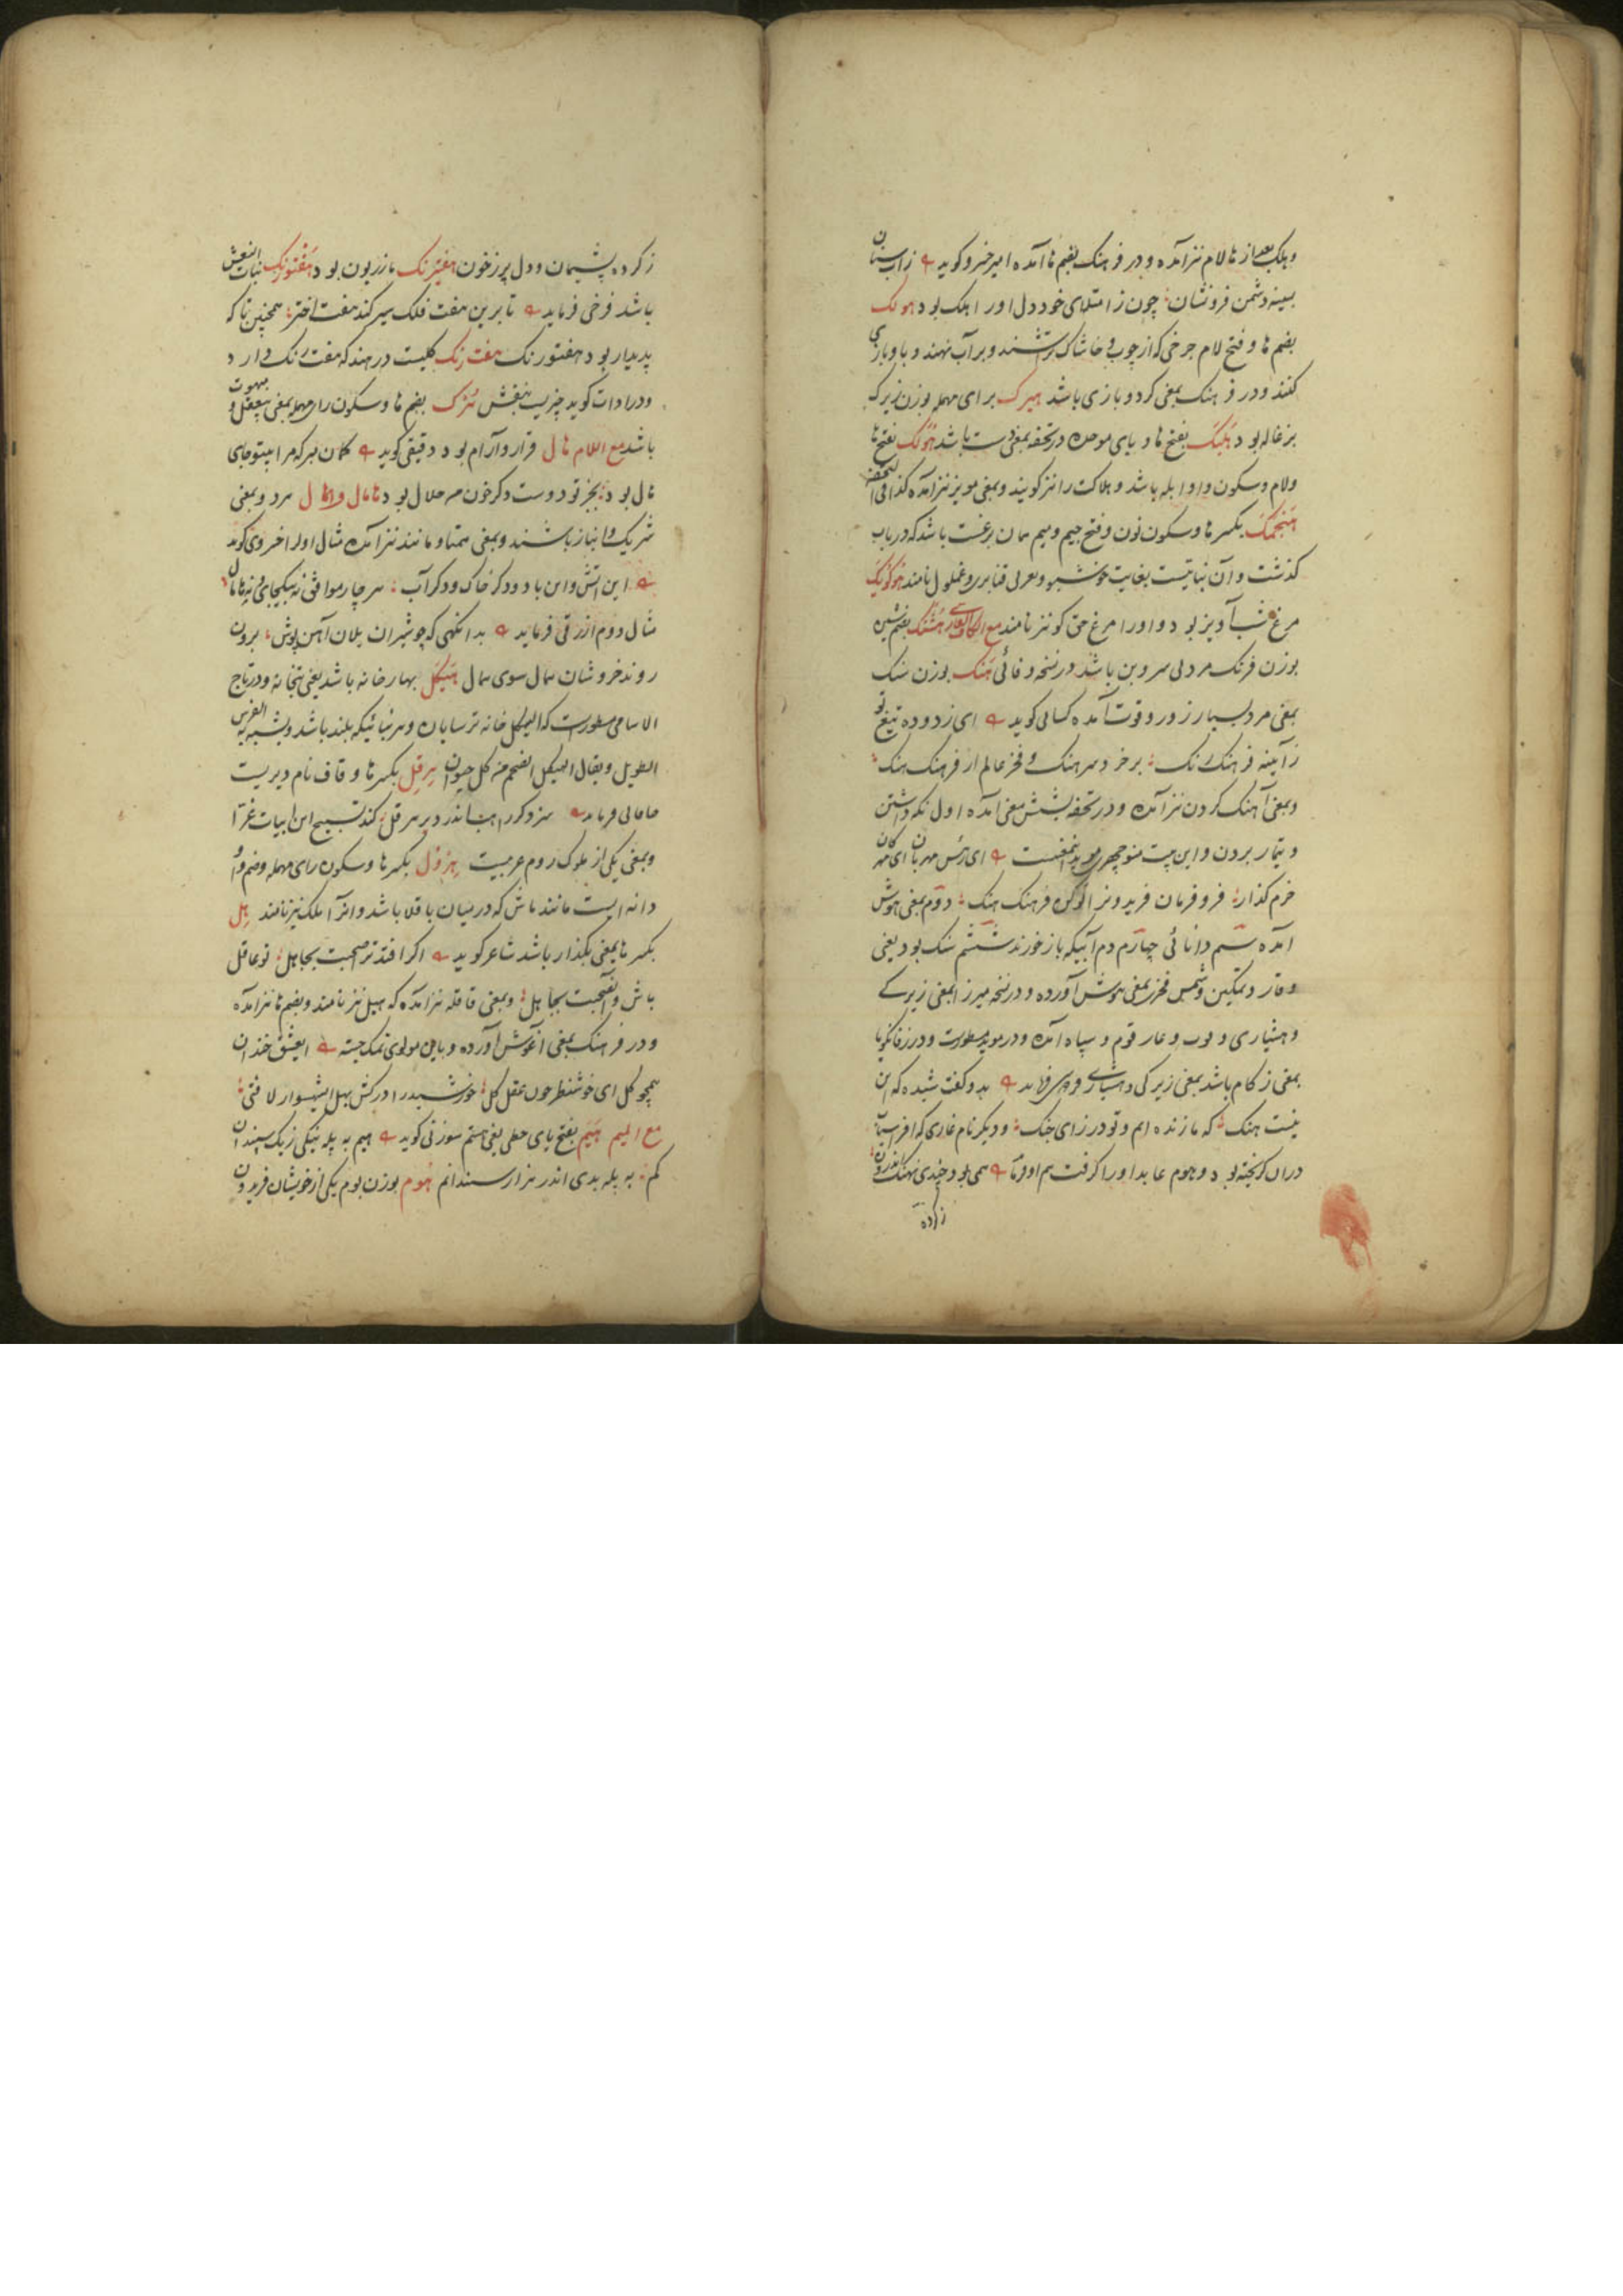 و هلک بعد از ها لام نیز آمده و در فرهنک بضم ها آمده امیر خسرو کوید زاب سنان
بسینه دشمن فرو نشان چون ز امتلای خود دل اورا هلک بود هولک
بضم ها و فتح لام چرخی که از چوب و خاشاک تراشند و بر آب نهند و با او بازی
کنند و در فرهنک بمعنی کردو بازی باشد هیرک برای مهمله بوزن زیرک
بزغاله بود هبک بفتح ها و بای موحده در تحفه بمعنی دست باشد هولک بفتح ها
ولام وسکون واو ابله باشد و هلاکت را نیز کویند و بمعنی مویز نیز آمده کذا فی التحفه
هنجمک بکسر ها وسکون نون و فتح جیم و میم همان برغست باشد که در باب
کذشت و آن نباتیست بغایت خوشبو و بعربی قنابری و غملول نامند هوکویک
مرغ شب آویز بود و اورا مرغ حق کو نیز نامند مع الکاف الفارسی هشنک بضم شین
بوزن فرنک مردلی سر و بن باشد در نسخه وفائی هنک بوزن سنک
بمعنی مرد بسیار زور و قوت آمده کسائی کوید ای زدوده تیغ تو
ز آیینه فرهنک رنک بر خرد سرهنک و فخر عالم از فرهنک هنک
و بمعنی آهنک کردن نیز آمده و در تحفه بشش معنی آمده اول نکه داشتن
و تیمار بردن و این بیت منوچهری موید اینمعنیست ای رئیس مهربان ای مهرکان
خرم کذار فر و فرمان فریدونرا تو کن فرهنک هنک دوم بمعنی هوش
آمده سیم دانائی چهارم دم آبیکه باز خورند ششم سنک بود یعنی
وقار و تمکین و شمس فخری بمعنی هوش آورده و در نسخه میرزا بمعنی زیرکی
و هشیاری و قوم و سپاه آمده و در موید مسطورست و در زفانکویا
بمعنی زکام باشد بمعنی زیرکی و هشیاری فردوسی فرماید بدو کفت شیده که این
نیست هنک که ما زنده ایم و تو در زای جنک و دیکر نام غاری که افراسیاب
در ان کریخته بود و هوم عابد اورا کرفت هم او فرماید همی بود چندی بهنک اندرون
ز کرده
ز کرده پشیمان و دل پر زخون هفتبرنک مازریون بود هفتورنک بنات النعش
باشد فرخی فرماید تا برین هفت فلک سیر کند هفت اختر همچنین تا که
پدیدار بود هفتورنک هفت رنک کلیست در هند که هفت رنک دارد
و در ادات کوید چیزیست بنقش هرک بضم ها وسکون رای مهمله بمعنی بیعقل و مبهوت
باشد مع اللام هال قرار وآرام بود دقیقی کوید کمان مبر که مرا بیتو جای
هال بود بجز تو دوست کر خون من حلال بود هامال و همال هر دو بمعنی
شریک و انباز باشند و بمعنی همتا و مانند نیز آمده مثال اول را خسروی کوید
این آتش واین باد و دکر خاک و دکر آب هر چار موافق نه بیکجای و نه هامال
مثال دوم ازرقی فرماید بدانکهی که چو شیران یلان آهن پوش برون
روند خروشان همال سوی همال هیکل بهارخانه باشد یعنی بتخانه و در تاج
الاسامی مسطورست که الهیکل خانه ترسایان و هر بنائیکه بلند باشد و یشبه به الفرس
الطویل و یقال الهیکل الضخم من کل حیوان هرقل بکسر ها و قاف نام دیریست
خاقانی فرماید سزد کر راهب اندر دیر هرقل کند تسبیح این ابیات غرا
و بمعنی یکی از ملوک روم عربیست هرفل بکسر ها وسکون رای مهمله وضم
دانه ایست مانند ماش که در میان باقلا باشد و انرا ملک نیز نامند هل
بکسر ها بمعنی بکذار باشد شاعر کوید اکر افتد ترا صحبت بجاهل تو عاقل
باش و آنصحبت بجا هل و بمعنی قاقله نیز آمده که هیل نیز نامند و بضم ها نیز آمده
و در فرهنک بمعنی آغوش آورده و باین مولوی تمسک جسته ای عشق خندان
همچو کل ای خوش نظر چون عقل کل خورشید را درکش بهل ای شهسوار لافتی
مع المیم هیم بفتح یای حطی یعنی هستم سوزنی کوید هیم به پله نیکی ز یک سپندان
کم به پله بدی اندر هزار سندانم هوم بوزن بوم یکی از خویشان فریدون